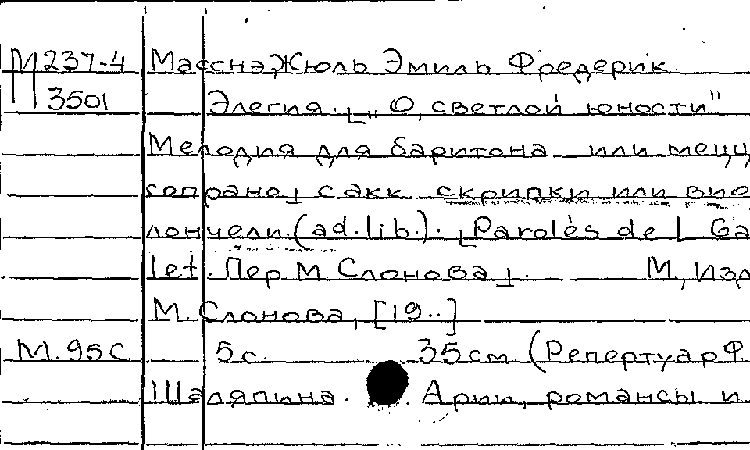 М237-4 Массна, Жюль Эмиль Фредерик
3501 Элегия. [„О, светлой юности"
Мелодия для баритона или мецц
сопрано] с акк. скрипки или вио
лончели (ad. lib.). [Paroles de L Ga
let. Пер М Слонова]. М., Изд
М. Слонова, [19..]
М. 95 С 5 с. 35 см (Репертуар Ф.
Шаляпина. Арии, романсы и